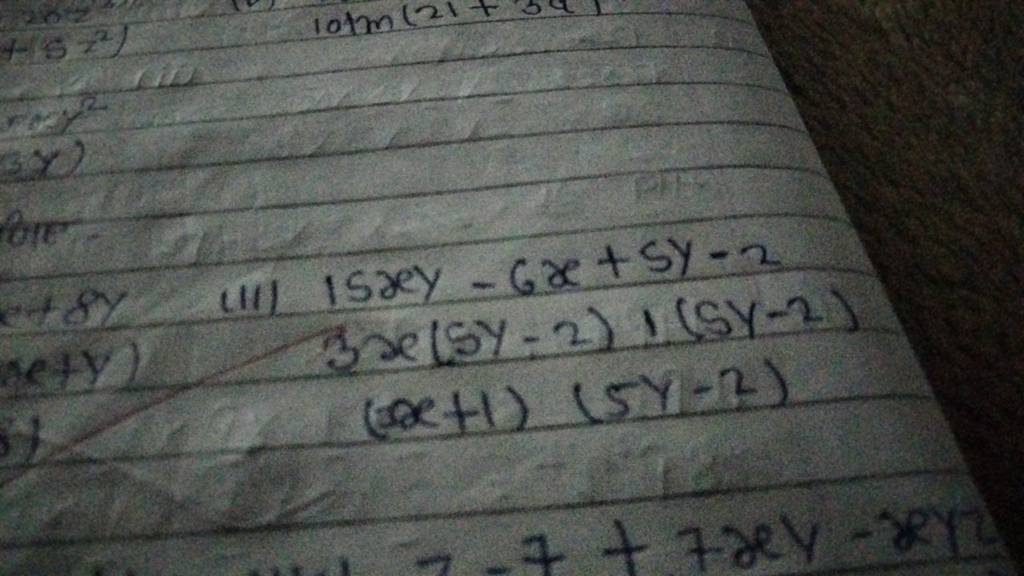 + 5z²) 10lm(2l + 3a)
xy²
3y)
x+8y (III) 15xy - 6x + 5y - 2
x+y) 3x(5y - 2) 1 (5y-2)
(3x+1) (5y-2)
z - 7 + 7xy - xyz